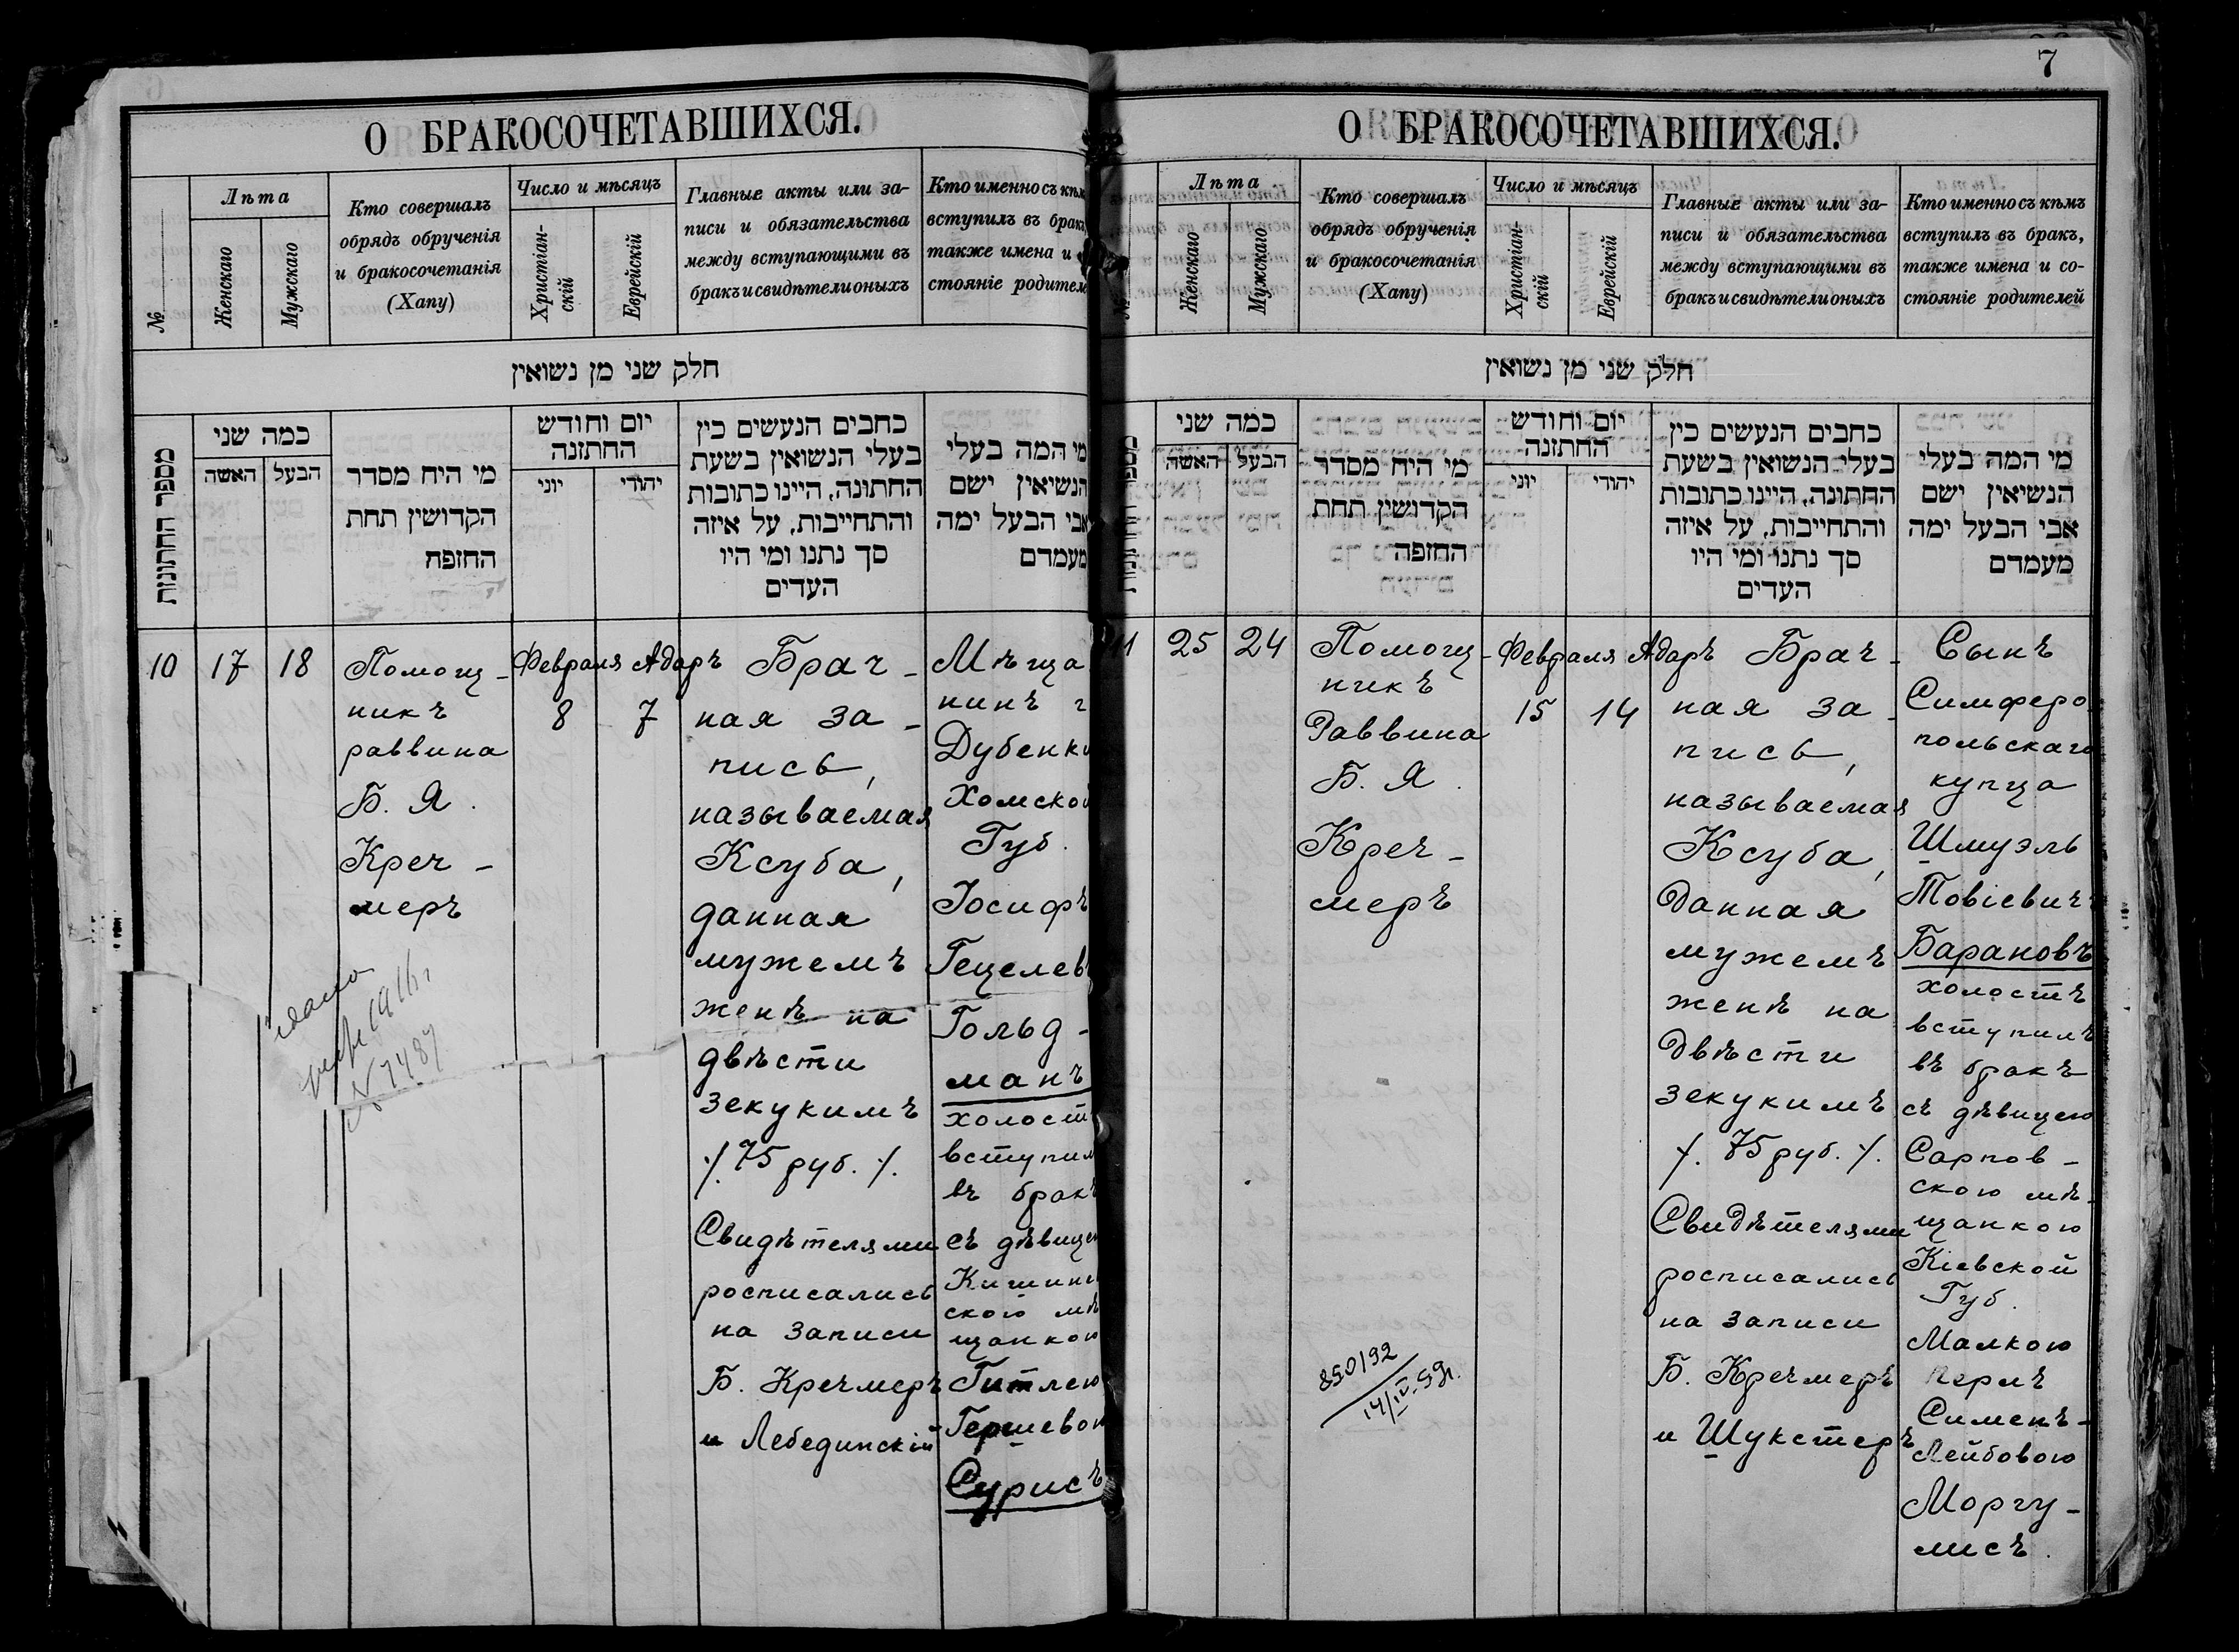 О БРАКОСОЧЕТАВШИХСЯ.
№
Лѣта
Женскаго
Мужскаго
Кто совершалъ
обрядъ обрученія
и бракосочетанія
(Хапу)
Число и мѣсяцъ
Христіан-
скій
Еврейскій
Главные акты или за-
писи и обязательства
между вступающими въ
бракъ и свидѣтели оныхъ
Кто именно съ кѣм
вступилъ въ бракъ
также имена и
стояніе родителе
חלק שני מן נשואין
מספר החתונות
כמה שני
האשה
הבעל
מי היח מסדר
הקדושין תחת
החזפה
יום וחודש
החתזנה
יוני
יהודי
כחבים הנעשים כין
בעלי הנשואין בשעת
החתונה, היינו כתובות
והתחייבות, על איזה
סך נתנו ומי היו
העדים
מי המה בעלי
הנשיאין ישם
אבי הבעל ימה
מעמדם
10
17
18
Помощ-
никъ
раввина
Б. Я.
Креч-
меръ
Февраля
8
Адаръ
7
Брач-
ная за-
пись,
называемая
Ксуба,
данная
мужемъ
женѣ на
двѣсти
зекукимъ
/. 75 руб. /.
Свидѣтелями
росписались
на записи
Б. Кречмеръ
и Лебединскій
Мѣща
нинъ г
Дубенки
Хомской
Губ.
Іосифъ
Гецелев
Гольд-
манъ
холост
вступил
въ бракъ
съ дѣвице
Кишине
ского мѣ
щанкою
Гитлею
Гершевою
Сурисъ
7
О БРАКОСОЧЕТАВШИХСЯ.
№
Лѣта
Женскаго
Мужскаго
Кто совершалъ
обрядъ обрученія
и бракосочетанія
(Хапу)
Число и мѣсяцъ
Христіан-
скій
Еврейскій
Главные акты или за-
писи и обязательства
между вступающими въ
бракъ и свидѣтели оныхъ
Кто именно съ кѣмъ
вступилъ въ бракъ,
также имена и со-
стояніе родителей
חלק שני מן נשואין
כמה שני
האשה
הבעל
מי היח מסדר
הקדושין תחת
החזפה
יום וחודש
החתזנה
יוני
יהודי
כחבים הנעשים כין
בעלי הנשואין בשעת
החתונה, היינו כתובות
והתחייבות, על איזה
סך נתנו ומי היו
העדים
מי המה בעלי
הנשיאין ישם
אבי הבעל ימה
מעמדם
11
25
24
Помощ-
никъ
Раввина
Б. Я.
Креч-
меръ
Февраля
15
Адаръ
14
Брач-
ная за-
пись,
называемая
Ксуба,
Данная
мужемъ
женѣ на
Двѣсти
зекукимъ
/. 75 руб. /.
Свидѣтелями
росписались
на записи
Б. Кречмеръ
и Шукстеръ
Сынъ
Симферо-
польскаго
купца
Шмуэль
Товіевичъ
Барановъ
холостъ
вступилъ
въ бракъ
съ дѣвицею
Сарнов-
скою мѣ-
щанкою
Кіевской
Губ.
Малкою
Перлъ
Сименъ-
Лейбовою
Моргу-
лисъ.
850192
14/IV.59г.